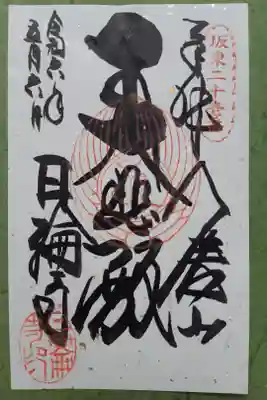 坂東二十
奉拝 八溝山
大悲殿
日輪寺
令和六年
五月六日